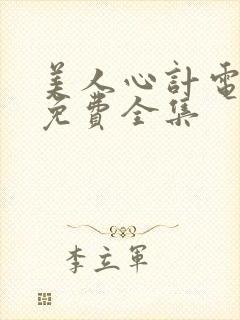 美人心計電
免費全集
李立軍